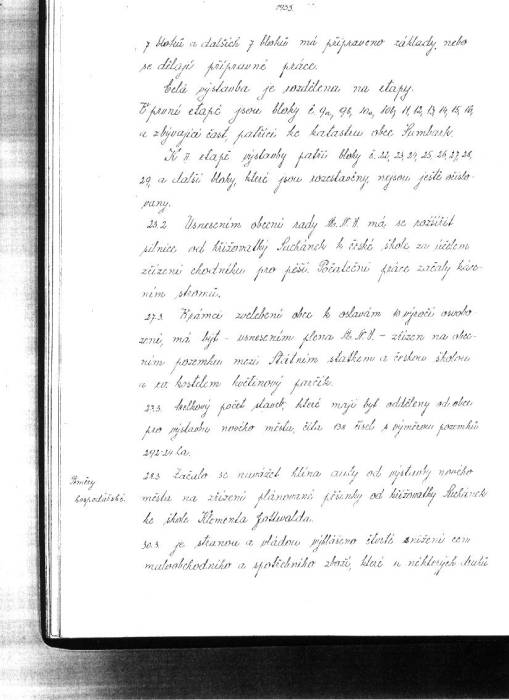 1955.
7 bloků a dalších 7 bloků má připraveno základy, nebo
se dělají přípravné práce.
Celá výstavba je rozdělena na etapy.
V první etapě jsou bloky č. 9a, 9b, 10a, 10b, 11, 12, 13, 14, 15, 16,
a zbývající část, patřící ke katastru obce Šumbark.
K II etapě výstavby patří bloky č. 22, 23, 24, 25, 26, 27, 28,
29, a další bloky, které jsou rozestavěny, nejsou ještě číslo-
vány.
23.2. Usnesením obecní rady M.N.V. má se rozšířit
silnice od křižovatky Suchánek k české škole za účelem
zřízení chodníku pro pěší. Počáteční práce začaly káce-
ním stromů.
27.3. V rámci zvelebení obce k oslavám 10 výročí osvobo-
zení, má být - usnesením plena M.N.V. - zřízen na obec-
ním pozemku mezi Státním statkem a českou školou
a ev. kostelem květinový parčík.
27.3. Celkový počet staveb, které mají být odděleny od obce
pro výstavbu nového města, čítá 138 čísel s výměrou pozemků
292·24 ha.
Poměry
hospodářské.
28.3. Začalo se navážet hlína auty od výstavby nového
města na zřízení plánované pěšinky od křižovatky Suchánek
ke škole Klementa Gottwalda.
30.3. je stranou a vládou vyhlášeno čtvrté snížení cen
maloobchodního a spotřebního zboží, které u některých druhů